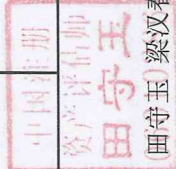 中国注册
资产评估师
田守玉
田守玉 梁汉